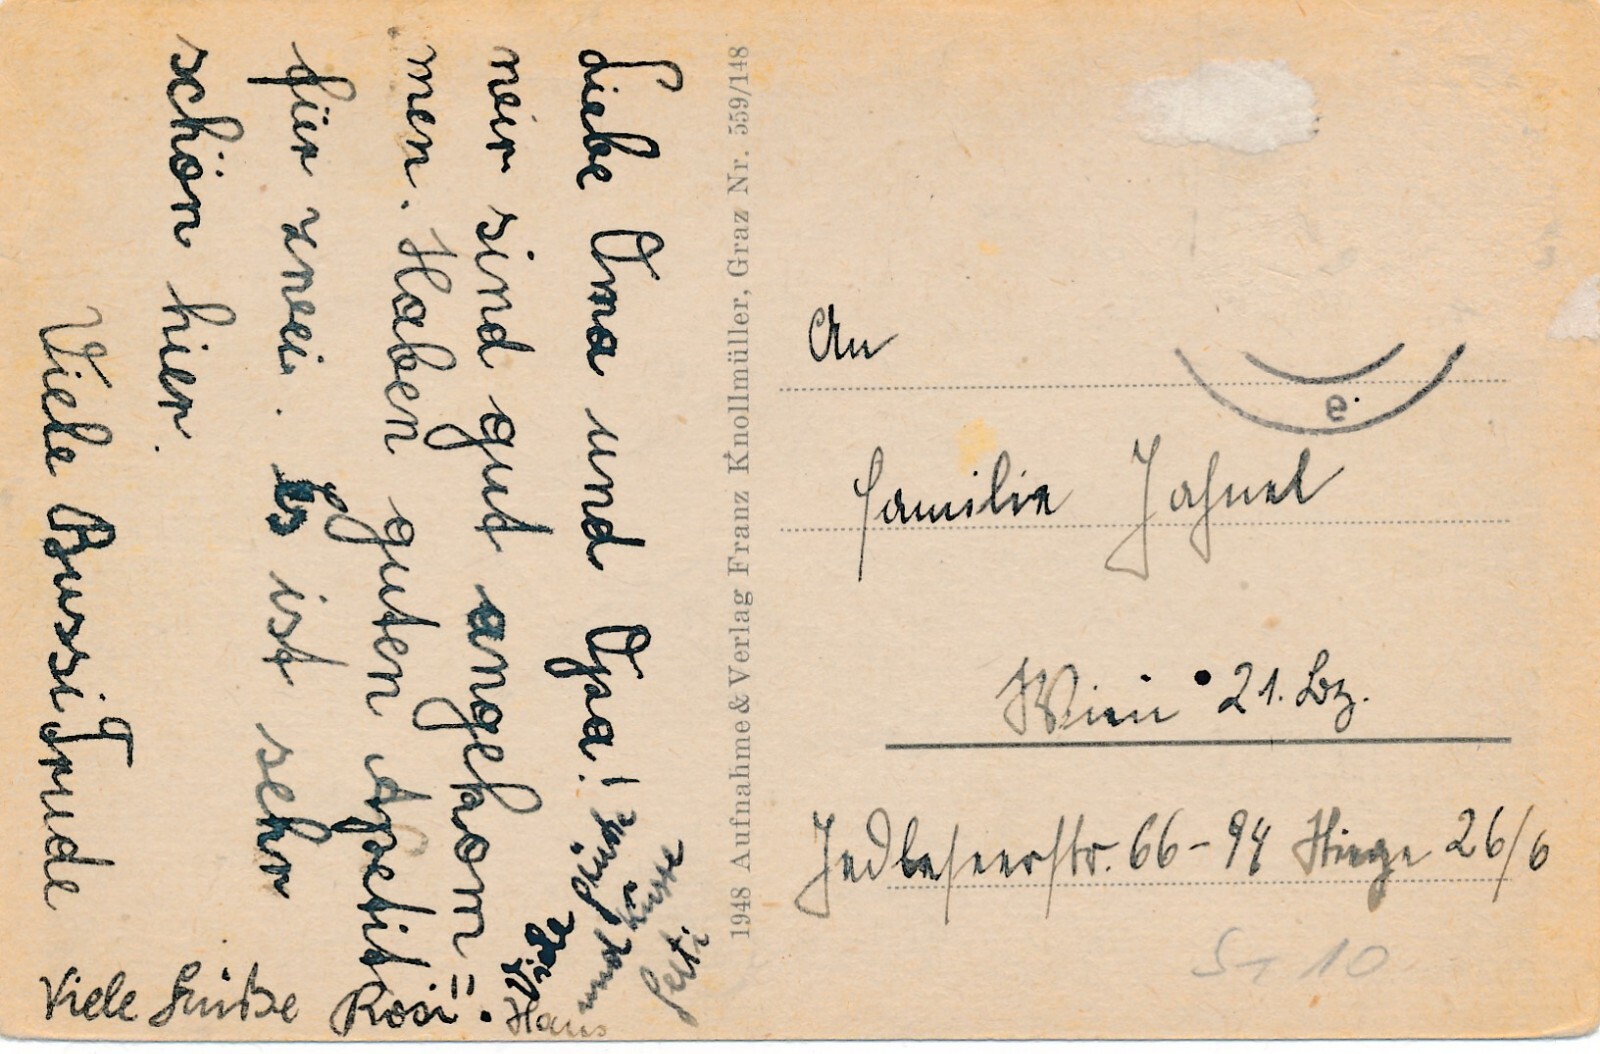 Liebe Oma und Opa!
wir sind gut angekom=
men. Haben guten Apetit
für zwei. Es ist sehr
schön hier.
Viele Bussi Trude
Viele Grüße Rosi.
Viele
Hans
Küsse
1948 Aufnahme & Verlag Franz Knollmüller, Graz Nr. 559/148
An
Familie Jahnel
Wien • 21. Bz.
Jedleseerstr. 66-94 Stiege 26/6
S- 10